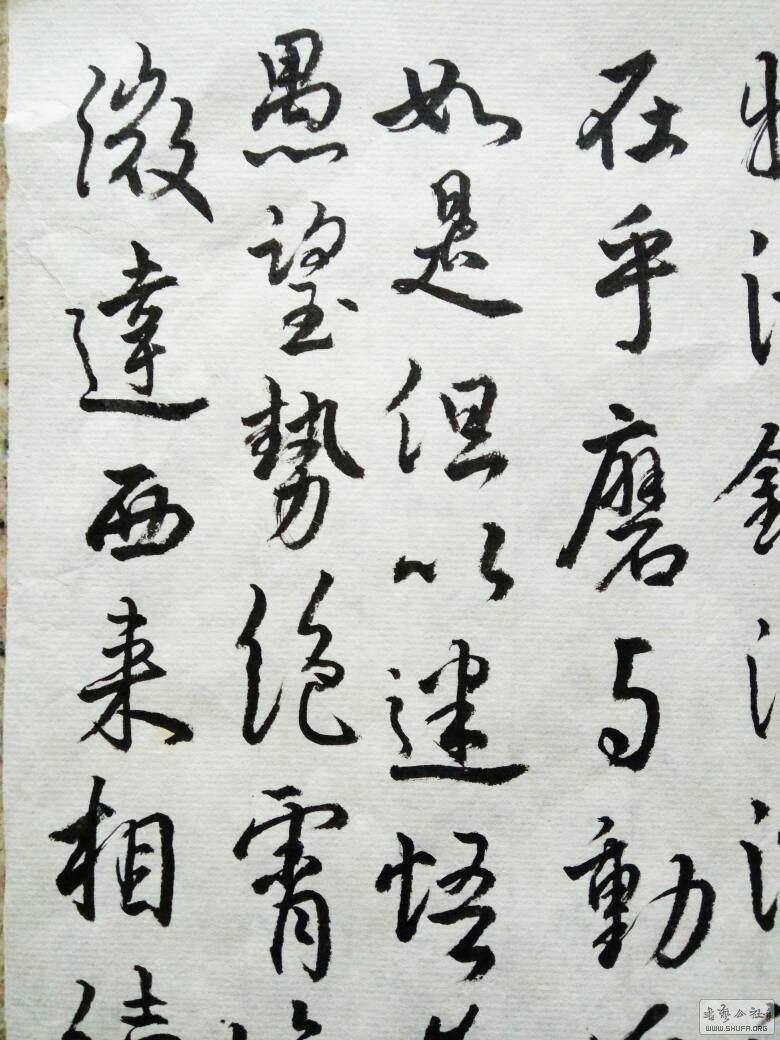 在乎磨与動
如是但以悟
愚望勢絕霄
微達西来相
WWW.SHUFA.ORG